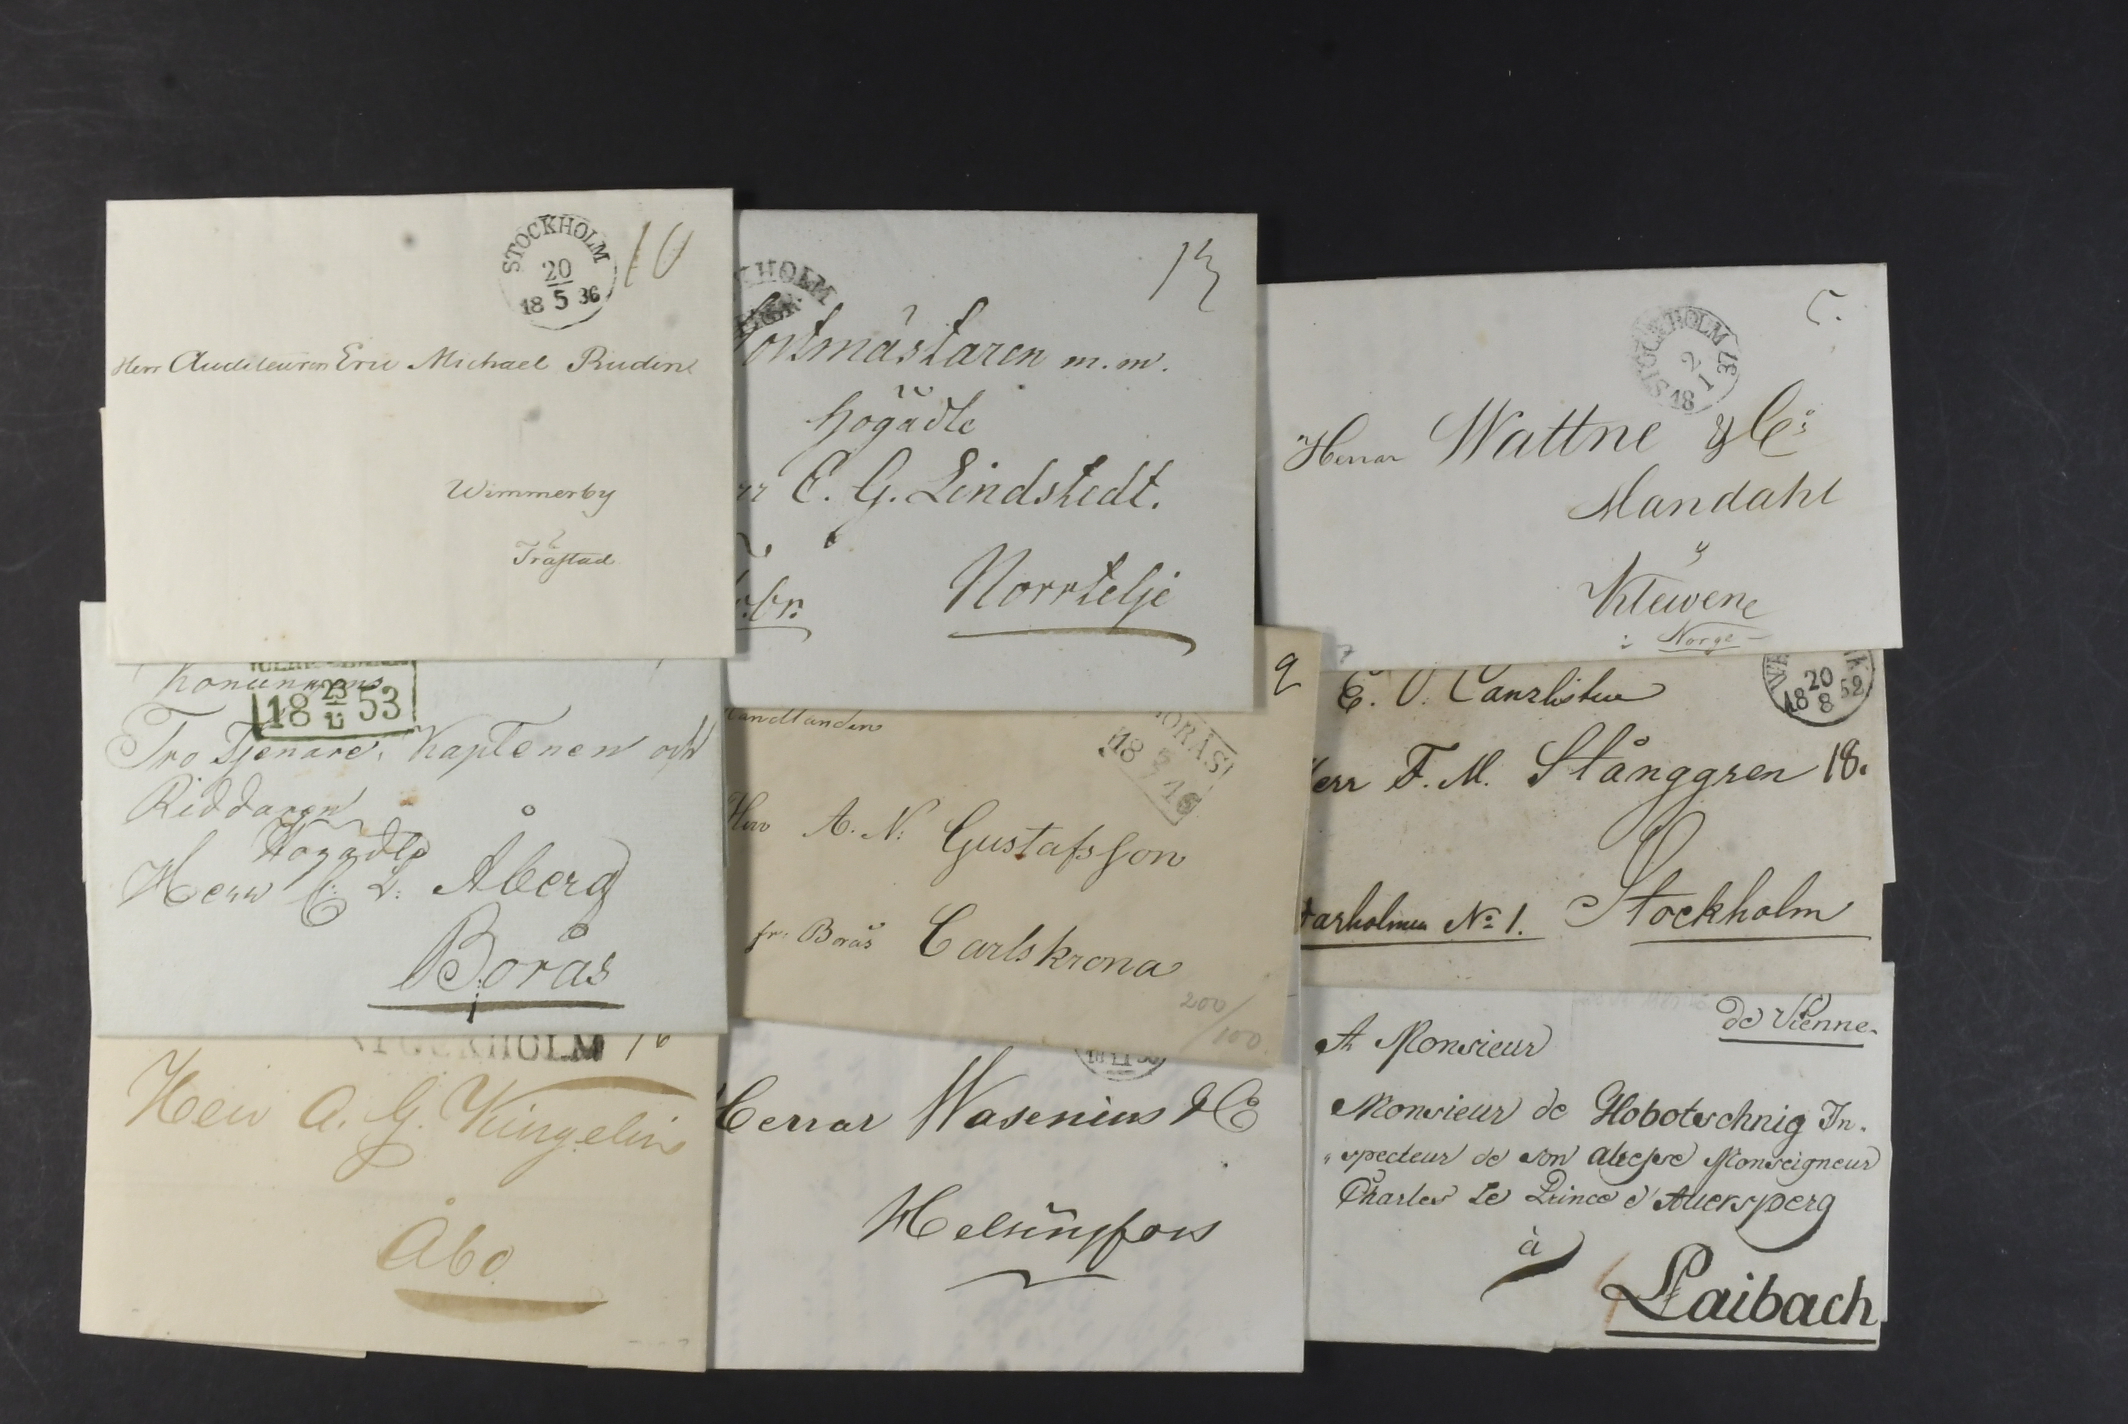 STOCKHOLM
20
18 5 36
10
Herr Auditeuren Eric Michael Rudin
Wimmerby
Tråstad
KHOLM
13
Postmästaren m.m.
Högädle
E. G. Lindstedt.
Norrtelje
STOCKHOLM
2
18 1
Herrar Wattne & Co:
Mandahl
Klewene
Norge
Konungens
18 23 53
Tro Tjenare, Kaptenen och
Riddaren
Högädle
Herr C. L. Åberg
Borås
9
BORÅS
18
Herr A. N. Gustafsson
fr. Borås Carlskrona
200/100
20
18 8 52
E. O. Canzlisten
Herr F. M. Stånggren 18.
Starholmen No 1. Stockholm
STOCKHOLM
Herr A. G. Kingelin
Åbo
Herrar Wasenius & Co
Helsingfors
de Vienne.
A Monsieur
Monsieur de Hobotschnig In-
specteur de son altesse Monseigneur
Charles Le Prince d'Auersperg
à
Laibach